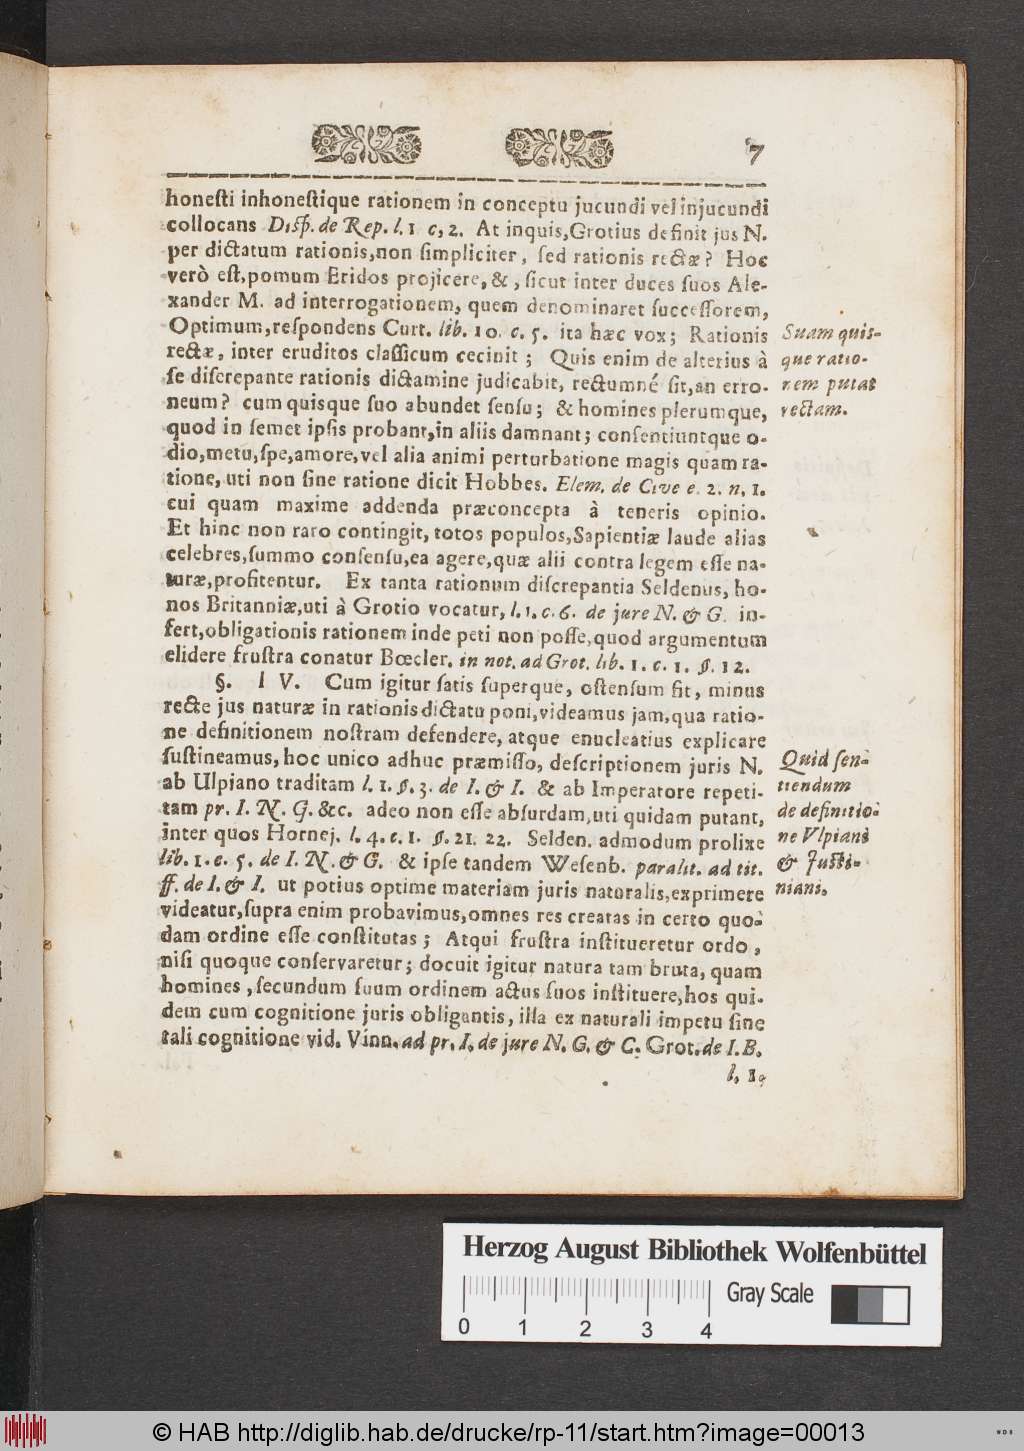 7
honesti inhonestique rationem in conceptu jucundi vel injucundi
collocans Disp. de Rep. l. 1 c, 2. At inquis, Grotius definit jus N.
per dictatum rationis, non simpliciter, sed rationis rectæ? Hoc
verò est, pomum Eridos projicere, &, sicut inter duces suos Ale-
xander M. ad interrogationem, quem denominaret successorem,
Optimum, respondens Curt. lib. 10. c. 5. ita hæc vox; Rationis
rectæ, inter eruditos classicum cecinit; Quis enim de alterius à
se discrepante rationis dictamine judicabit, rectumné sit, an erro-
neum? cum quisque suo abundet sensu; & homines plerumque,
quod in semet ipsis probant, in aliis damnant; consentiuntque o-
dio, metu, spe, amore, vel alia animi perturbatione magis quam ra-
tione, uti non sine ratione dicit Hobbes. Elem. de Cive c. 2. n. 1.
cui quam maxime addenda præconcepta à teneris opinio.
Et hinc non raro contingit, totos populos, Sapientiæ laude alias
celebres, summo consensu, ea agere, quæ alii contra legem esse na-
turæ, profitentur. Ex tanta rationum discrepantia Seldenus, ho-
nos Britanniæ, uti à Grotio vocatur, l. 1. c. 6. de jure N. & G. in-
fert, obligationis rationem inde peti non posse, quod argumentum
elidere frustra conatur Bœcler. in not. ad Grot. lib. 1. c. 1. §. 12.
Suam quis-
que ratio-
nem putat
rectam.
§. I V. Cum igitur satis superque, ostensum sit, minus
recte jus naturæ in rationis dictatu poni, videamus jam, qua ratio-
ne definitionem nostram defendere, atque enucleatius explicare
sustineamus, hoc unico adhuc præmisso, descriptionem juris N.
ab Ulpiano traditam l. 1. §. 3. de I. & I. & ab Imperatore repeti-
tam pr. I. N. G. &c. adeo non esse absurdam, uti quidam putant,
inter quos Hornej. l. 4. c. 1. §. 21. 22. Selden. admodum prolixe
lib. 1. c. 5. de I. N. & G. & ipse tandem Wesenb. paralit. ad tit.
ff. de I. & I. ut potius optime materiam juris naturalis, exprimere
videatur, supra enim probavimus, omnes res creatas in certo quo-
dam ordine esse constitutas; Atqui frustra institueretur ordo,
nisi quoque conservaretur; docuit igitur natura tam bruta, quam
homines, secundum suum ordinem actus suos instituere, hos qui-
dem cum cognitione juris obligantis, illa ex naturali impetu sine
tali cognitione vid. Vinn. ad pr. I. de jure N. G. & C. Grot. de I. B.
l. 1.
Quid sen-
tiendum
de definitio-
ne Vlpiani
& Justi-
niani.
Herzog August Bibliothek Wolfenbüttel
Gray Scale
0 1 2 3 4
© HAB http://diglib.hab.de/drucke/rp-11/start.htm?image=00013